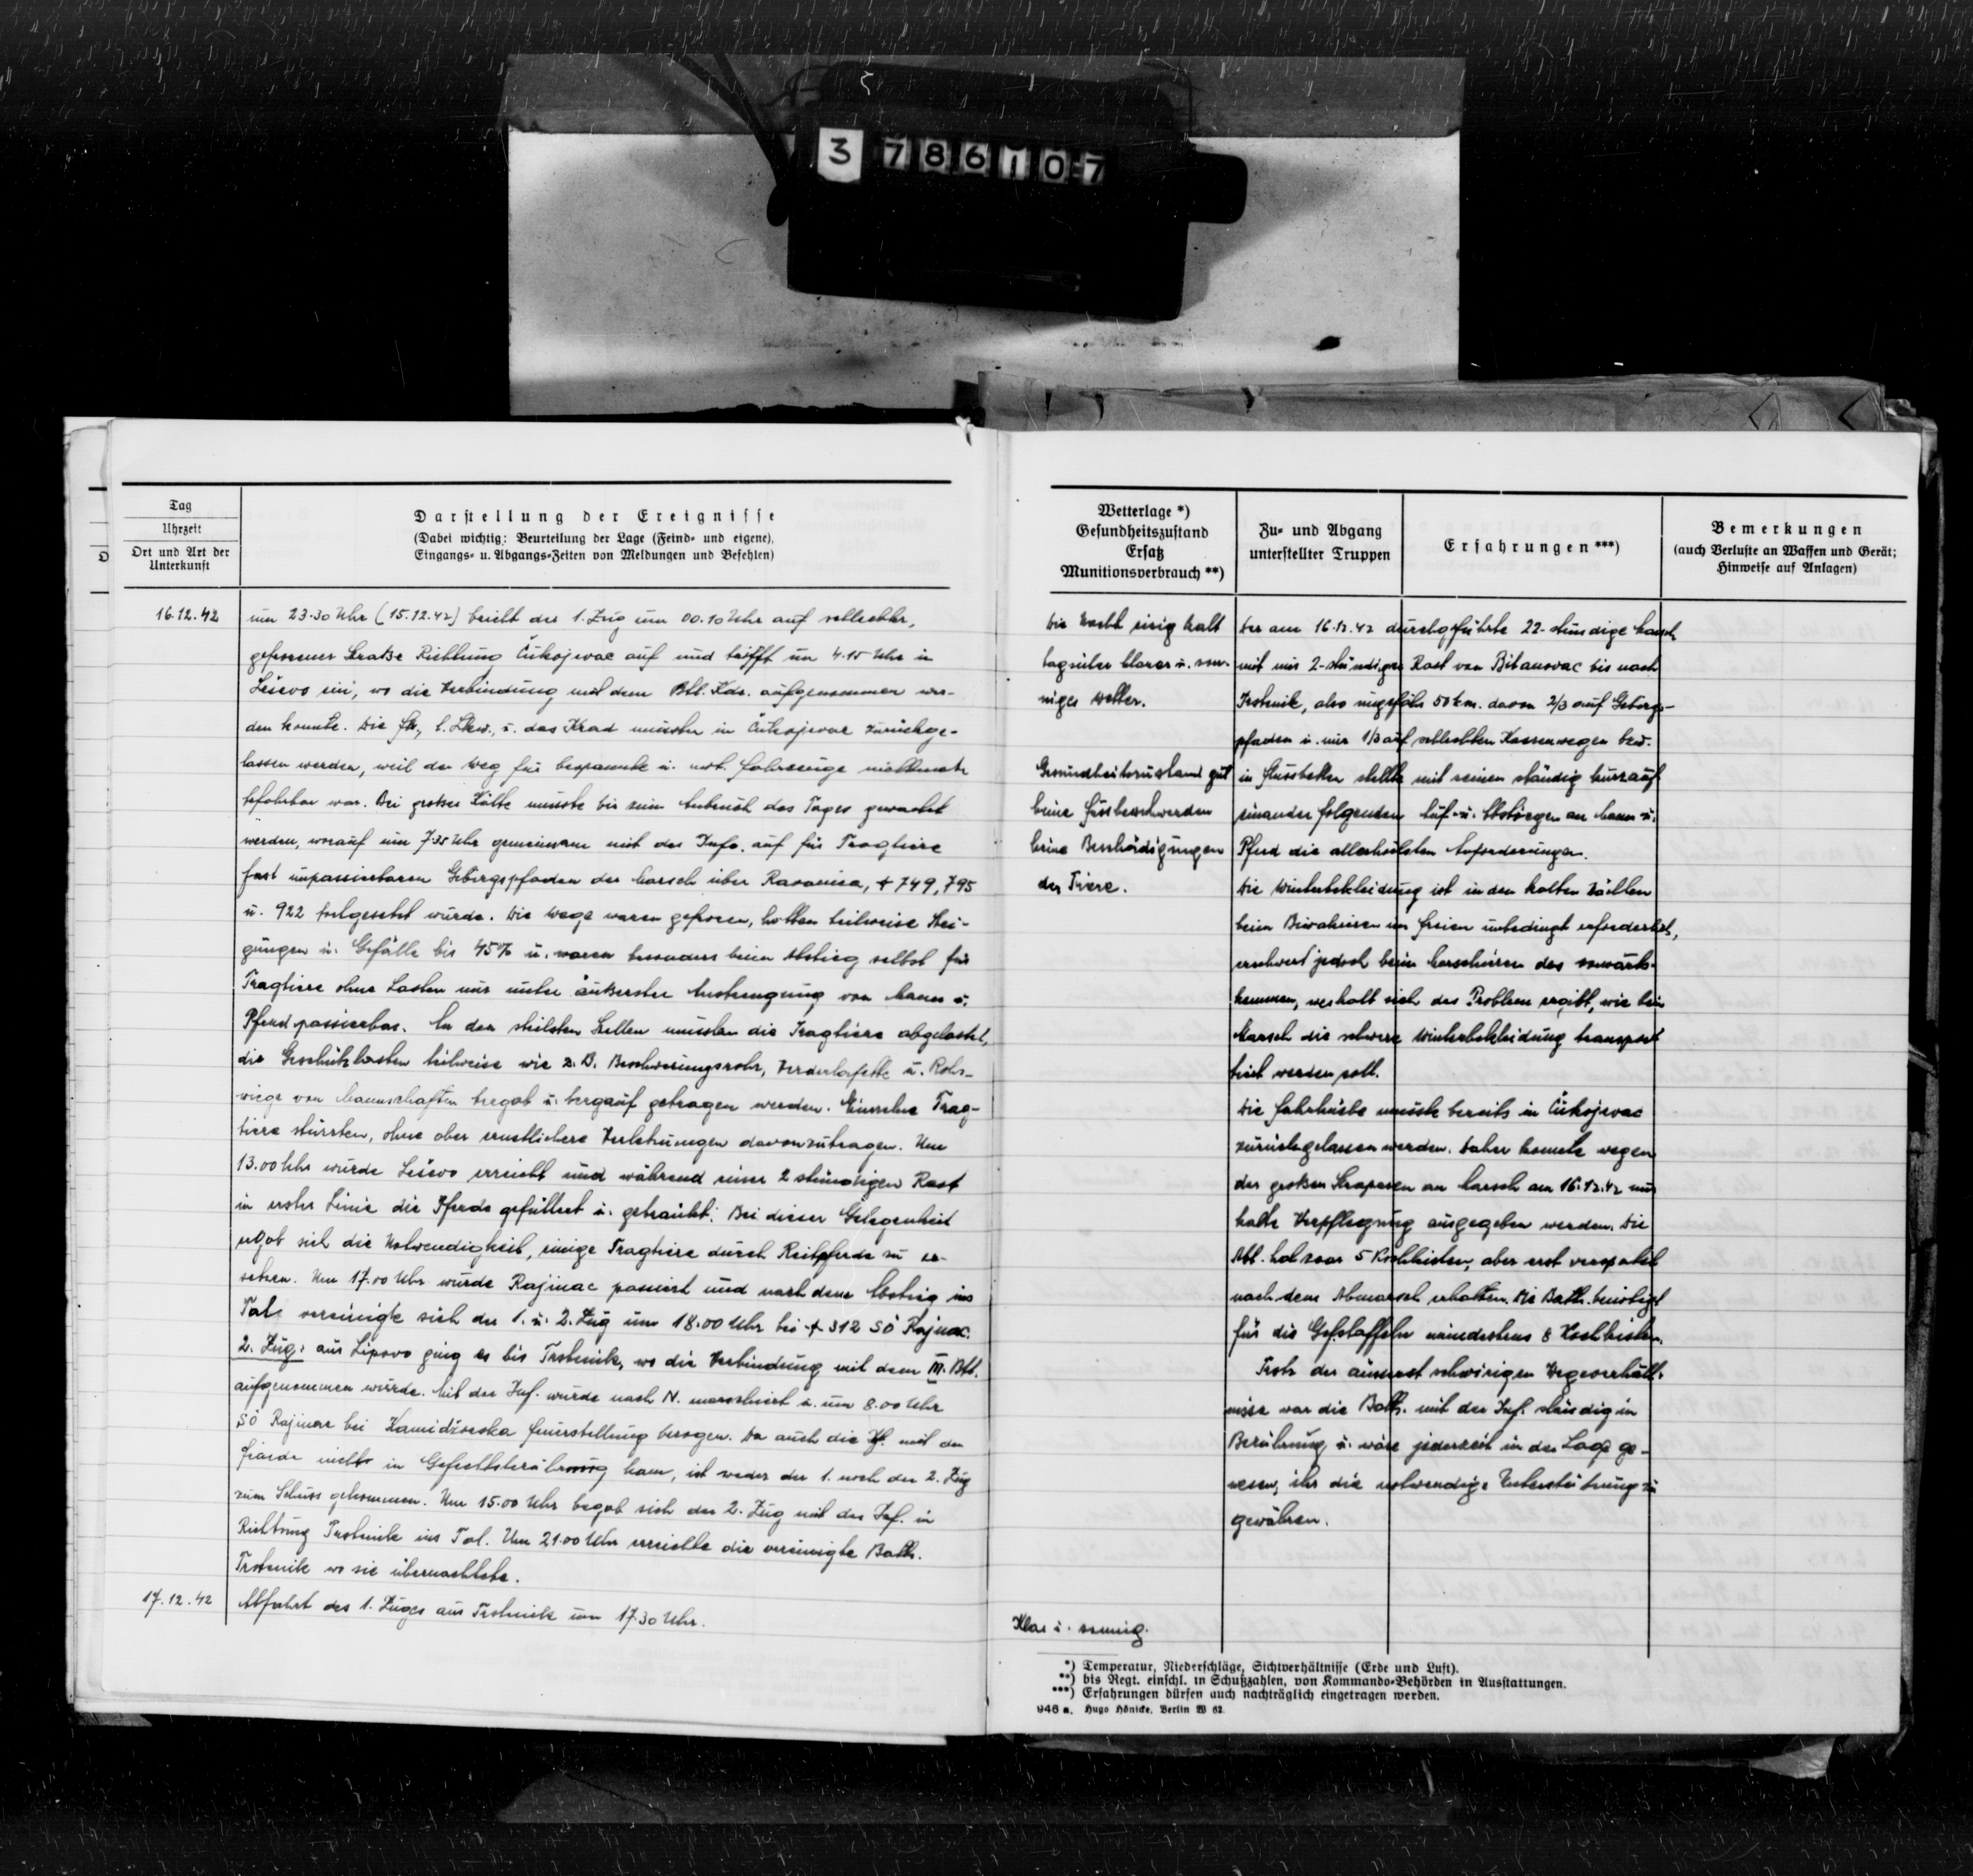 3786107
Tag
Uhrzeit
Ort und Art der
Unterkunft
Darstellung der Ereignisse
(Dabei wichtig: Beurteilung der Lage (Feind- und eigene),
Eingangs- u. Abgangs-Zeiten von Meldungen und Befehlen)
16.12.42
um 23.30 Uhr (15.12.42) bricht der 1. Zug um 00.10 Uhr auf schlechter,
gefrorener Straße Richtung Čukojevac auf und trifft um 4.15 Uhr in
Leševo ein, wo die Verbindung mit dem Btl. Kdr. aufgenommen wer-
den konnte. Die l. Lkw., u. das Krad mussten in Čukojevac zurückge-
lassen werden, weil der Weg für bespannte u. mot. Fahrzeuge nichtmehr
befahrbar war. Bei grosser Kälte musste bis zum Anbruch des Tages gewartet
werden, worauf um 7.35 Uhr gemeinsam mit der Inf. auf für Tragtiere
fast unpassierbaren Gebirgspfaden der Marsch über Ravanica, + 749, 795
u. 922 fortgesetzt wurde. Die Wege waren gefroren, hatten teilweise Stei-
gungen u. Gefälle bis 45% u. waren besonders beim Abstieg selbst für
Tragtiere ohne Lasten nur unter äußerster Anstrengung von Mann u.
Pferd passierbar. An den steilsten Stellen mussten die Tragtiere abgelastet,
die Geschützlasten teilweise wie z.B. Beschwerungsrohr, Vorderlafette u. Rohr-
wiege von Mannschaften bergab u. bergauf getragen werden. Einzelne Trag-
tiere stürzten, ohne aber ernstlichere Verletzungen davonzutragen. Um
13.00 Uhr wurde Leševo erreicht und während einer 2 stündigen Rast
in erster Linie die Pferde gefüttert u. getränkt. Bei dieser Gelegenheit
ergab sich die Notwendigkeit, einige Tragtiere durch Reitpferde zu er-
setzen. Um 17.00 Uhr wurde Rajinac passiert und nach dem Abstieg ins
Tal vereinigte sich der 1. u. 2. Zug um 18.00 Uhr bei + 312 SÖ Rajnac.
2. Zug: aus Lipovo ging es bis Trstenik, wo die Verbindung mit dem III. Btl.
aufgenommen wurde. Mit der Inf. wurde nach N. marschiert u. um 8.00 Uhr
SÖ Rajinac bei Kamidžorska Feuerstellung bezogen. Da auch die Inf. mit dem
Feinde nicht in Gefechtsberührung kam, ist weder der 1. noch der 2. Zug
zum Schuss gekommen. Um 15.00 Uhr begab sich der 2. Zug mit der Inf. in
Richtung Trstenik ins Tal. Um 21.00 Uhr erreichte die vereinigte Battr.
Trstenik wo sie übernachtete.
17.12.42
Abfahrt des 1. Zuges aus Trstenik um 17.30 Uhr.
Wetterlage *)
Gesundheitszustand
Ersatz
Munitionsverbrauch **)
Zu- und Abgang
unterstellter Truppen
Erfahrungen ***)
Bemerkungen
(auch Verluste an Waffen und Gerät;
Hinweise auf Anlagen)
Die Nacht eisig kalt
tagsüber klares u. son-
niges Wetter.
Gesundheitszustand gut
keine Fussbeschwerden
keine Beschädigungen
der Tiere.
Klar u. sonnig.
Der am 16.12.42 durchgeführte 22-stündige Marsch
mit nur 2-stündiger Rast von Bitanovac bis nach
Trstenik, also ungefähr 50 km. davon 2/3 auf Gebirgs-
pfaden u. nur 1/3 auf schlechten Karrenwegen bzw.
in Flussbetten stellte mit seinen ständig kurz auf
einander folgenden Auf- u. Abstiegen an Mann u.
Pferd die allerhöchsten Anforderungen.
Die Winterbekleidung ist in den kalten Nächten
beim Biwakieren im Freien unbedingt erforderlich,
erschwert jedoch beim Marschieren das vorwärts-
kommen, weshalb sich das Problem ergibt, wie beim
Marsch die schwere Winterbekleidung transpor-
tiert werden soll.
Die Fahrküche musste bereits in Čukojevac
zurückgelassen werden. Daher konnte wegen
der großen Strapazen am Marsch am 16.12.42 nur
kalte Verpflegung ausgegeben werden. Die
Abt. hat zwar 5 Kochkisten, aber erst verspätet
nach dem Abmarsch erhalten. Die Battr. benötigt
für die Gef.staffeln mindestens 8 Kochkisten.
Trotz der äusserst schwierigen Wegeverhält-
nisse war die Battr. mit der Inf. ständig in
Berührung u. wäre jederzeit in der Lage ge-
wesen, ihr die notwendige Unterstützung zu
gewähren.
*) Temperatur, Niederschläge, Sichtverhältnisse (Erde und Luft).
**) bis Regt. einschl. in Schußzahlen, von Kommando-Behörden in Ausstattungen.
***) Erfahrungen dürfen auch nachträglich eingetragen werden.
946 a. Hugo Hönicke, Berlin W 62.